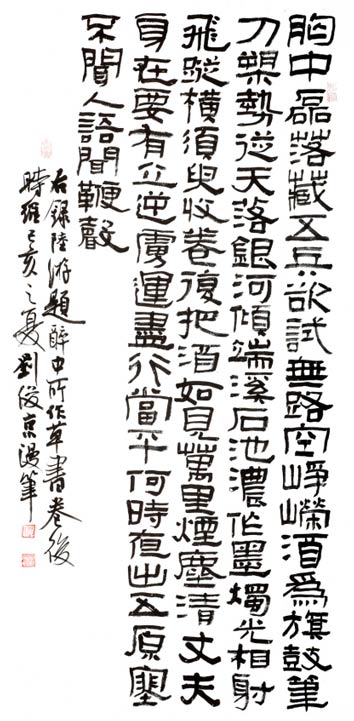 胸中磊落藏五兵欲試無路空崢嶸酒為旗鼓筆
刀槊勢從天落銀河傾端溪石池濃作墨燭光相射
飛縱橫須臾收卷復把酒如見萬里煙塵清丈夫
身在要有立逆虜運盡行當平何時夜出五原塞
不聞人語聞鞭聲
右錄陸游題醉中所作草書卷後
時維己亥之夏劉俊京漫筆